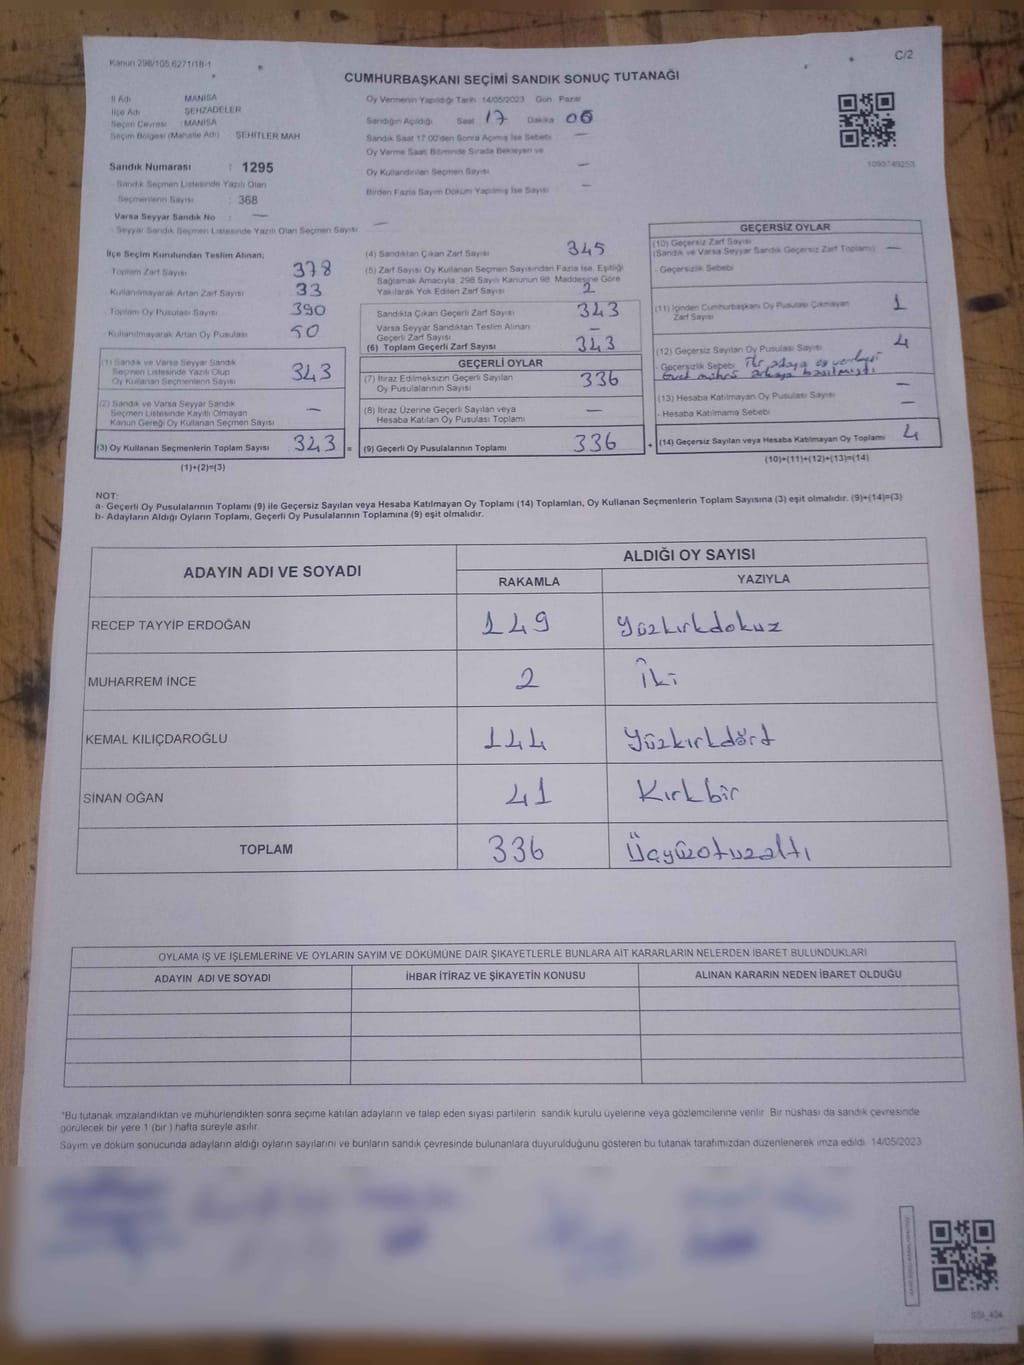 Kanun 298/105 6271/18-1
C/2
CUMHURBAŞKANI SEÇİMİ SANDIK SONUÇ TUTANAĞI
İl Adı MANİSA
İlçe Adı ŞEHZADELER
Seçim Çevresi : MANİSA
Seçim Bölgesi (Mahalle Adı) ŞEHİTLER MAH
Oy Vermenin Yapıldığı Tarih 14/05/2023 Gün Pazar
Sandığın Açıldığı Saat 17 Dakika 06
Sandık Saat 17.00'den Sonra Açılmış İse Sebebi —
Oy Verme Saati Bitiminde Sırada Bekleyen ve
Oy Kullandırılan Seçmen Sayısı —
Birden Fazla Sayım Döküm Yapılmış İse Sayısı —
1093749253
Sandık Numarası : 1295
Sandık Seçmen Listesinde Yazılı Olan
Seçmenlerin Sayısı : 368
Varsa Seyyar Sandık No : —
Seyyar Sandık Seçmen Listesinde Yazılı Olan Seçmen Sayısı —
İlçe Seçim Kurulundan Teslim Alınan;
Toplam Zarf Sayısı 378
Kullanılmayarak Artan Zarf Sayısı 33
Toplam Oy Pusulası Sayısı 390
Kullanılmayarak Artan Oy Pusulası 50
(1) Sandık ve Varsa Seyyar Sandık
Seçmen Listesinde Yazılı Olup
Oy Kullanan Seçmenlerin Sayısı 343
(2) Sandık ve Varsa Seyyar Sandık
Seçmen Listesinde Kayıtlı Olmayan
Kanun Gereği Oy Kullanan Seçmen Sayısı —
(3) Oy Kullanan Seçmenlerin Toplam Sayısı 343 =
(1)+(2)=(3)
(4) Sandıktan Çıkan Zarf Sayısı 345
(5) Zarf Sayısı Oy Kullanan Seçmen Sayısından Fazla İse, Eşitliği
Sağlamak Amacıyla, 298 Sayılı Kanunun 98. Maddesine Göre
Yakılarak Yok Edilen Zarf Sayısı 2
Sandıkta Çıkan Geçerli Zarf Sayısı 343
Varsa Seyyar Sandıktan Teslim Alınan
Geçerli Zarf Sayısı —
(6) Toplam Geçerli Zarf Sayısı 343
GEÇERLİ OYLAR
(7) İtiraz Edilmeksizin Geçerli Sayılan
Oy Pusulalarının Sayısı 336
(8) İtiraz Üzerine Geçerli Sayılan veya
Hesaba Katılan Oy Pusulası Toplamı —
(9) Geçerli Oy Pusulalarının Toplamı 336 +
GEÇERSİZ OYLAR
(10) Geçersiz Zarf Sayısı
(Sandık ve Varsa Seyyar Sandık Geçersiz Zarf Toplamı) —
- Geçersizlik Sebebi
(11) İçinden Cumhurbaşkanı Oy Pusulası Çıkmayan
Zarf Sayısı 1
(12) Geçersiz Sayılan Oy Pusulası Sayısı 4
- Geçersizlik Sebebi
(13) Hesaba Katılmayan Oy Pusulası Sayısı —
- Hesaba Katılmama Sebebi —
(14) Geçersiz Sayılan veya Hesaba Katılmayan Oy Toplamı 4
(10)+(11)+(12)+(13)=(14)
NOT:
a- Geçerli Oy Pusulalarının Toplamı (9) ile Geçersiz Sayılan veya Hesaba Katılmayan Oy Toplamı (14) Toplamları, Oy Kullanan Seçmenlerin Toplam Sayısına (3) eşit olmalıdır. (9)+(14)=(3)
b- Adayların Aldığı Oyların Toplamı, Geçerli Oy Pusulalarının Toplamına (9) eşit olmalıdır.
ADAYIN ADI VE SOYADI ALDIĞI OY SAYISI
RAKAMLA YAZIYLA
RECEP TAYYİP ERDOĞAN 149 Yüzkırkdokuz
MUHARREM İNCE 2 İki
KEMAL KILIÇDAROĞLU 144 Yüzkırkdört
SİNAN OĞAN 41 Kırkbir
TOPLAM 336 Üçyüzotuzaltı
OYLAMA İŞ VE İŞLEMLERİNE VE OYLARIN SAYIM VE DÖKÜMÜNE DAİR ŞİKAYETLERLE BUNLARA AİT KARARLARIN NELERDEN İBARET BULUNDUKLARI
ADAYIN ADI VE SOYADI İHBAR İTİRAZ VE ŞİKAYETİN KONUSU ALINAN KARARIN NEDEN İBARET OLDUĞU
*Bu tutanak imzalandıktan ve mühürlendikten sonra seçime katılan adayların ve talep eden siyasi partilerin sandık kurulu üyelerine veya gözlemcilerine verilir. Bir nüshası da sandık çevresinde
görülecek bir yere 1 (bir ) hafta süreyle asılır.
Sayım ve döküm sonucunda adayların aldığı oyların sayılarını ve bunların sandık çevresinde bulunanlara duyurulduğunu gösteren bu tutanak tarafımızdan düzenlenerek imza edildi. 14/05/2023